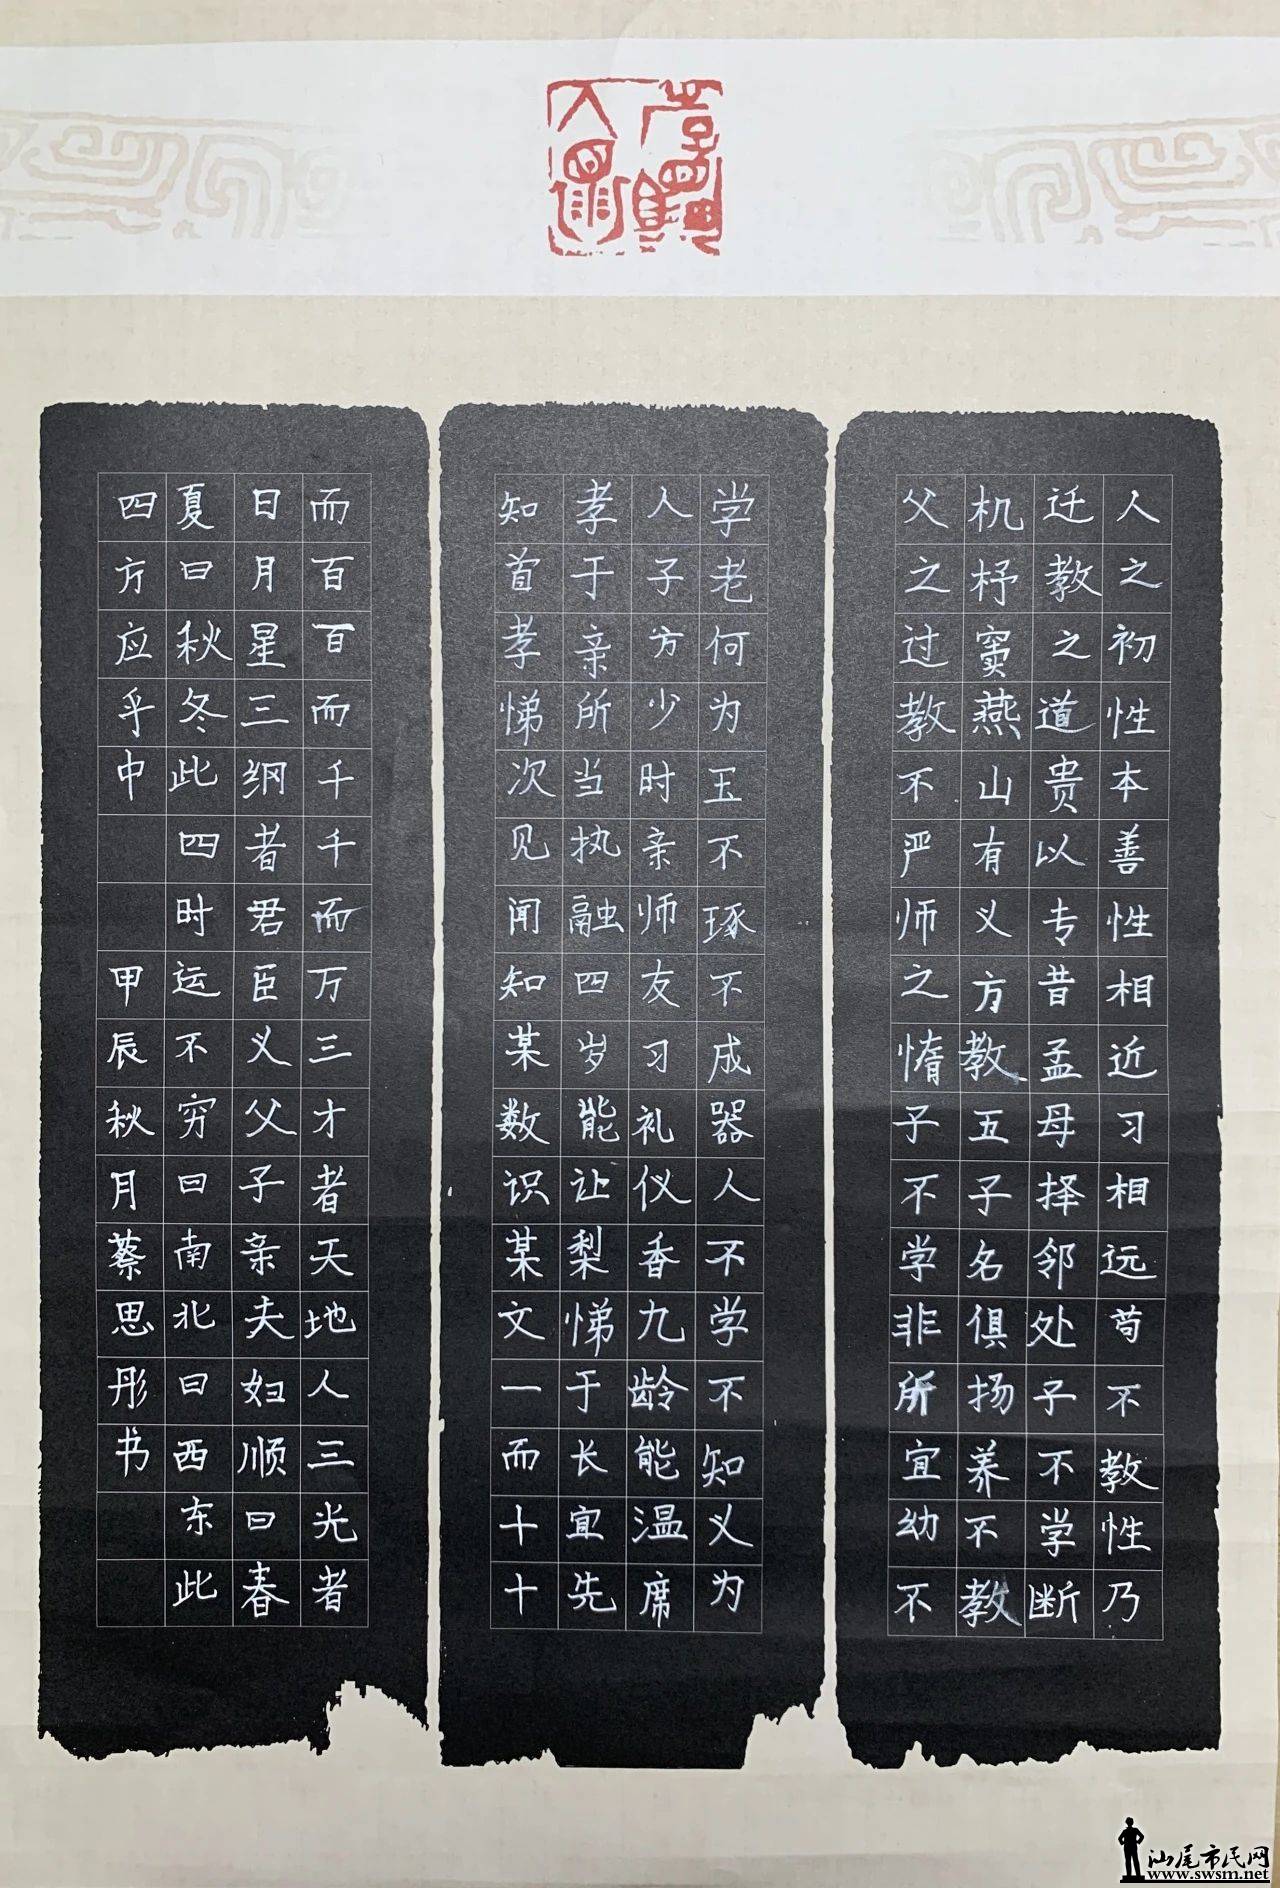 人之初性本善性相近习相远苟不教性乃
迁教之道贵以专昔孟母择邻处子不学断
机杼窦燕山有义方教五子名俱扬养不教
父之过教不严师之惰子不学非所宜幼不
学老何为玉不琢不成器人不学不知义为
人子方少时亲师友习礼仪香九龄能温席
孝于亲所当执融四岁能让梨悌于长宜先
知首孝悌次见闻知某数识某文一而十十
而百百而千千而万三才者天地人三光者
日月星三纲者君臣义父子亲夫妇顺曰春
夏曰秋冬此四时运不穷曰南北曰西东此
四方应乎中
甲辰秋月蔡思彤书
汕尾市民网
www.swsm.net